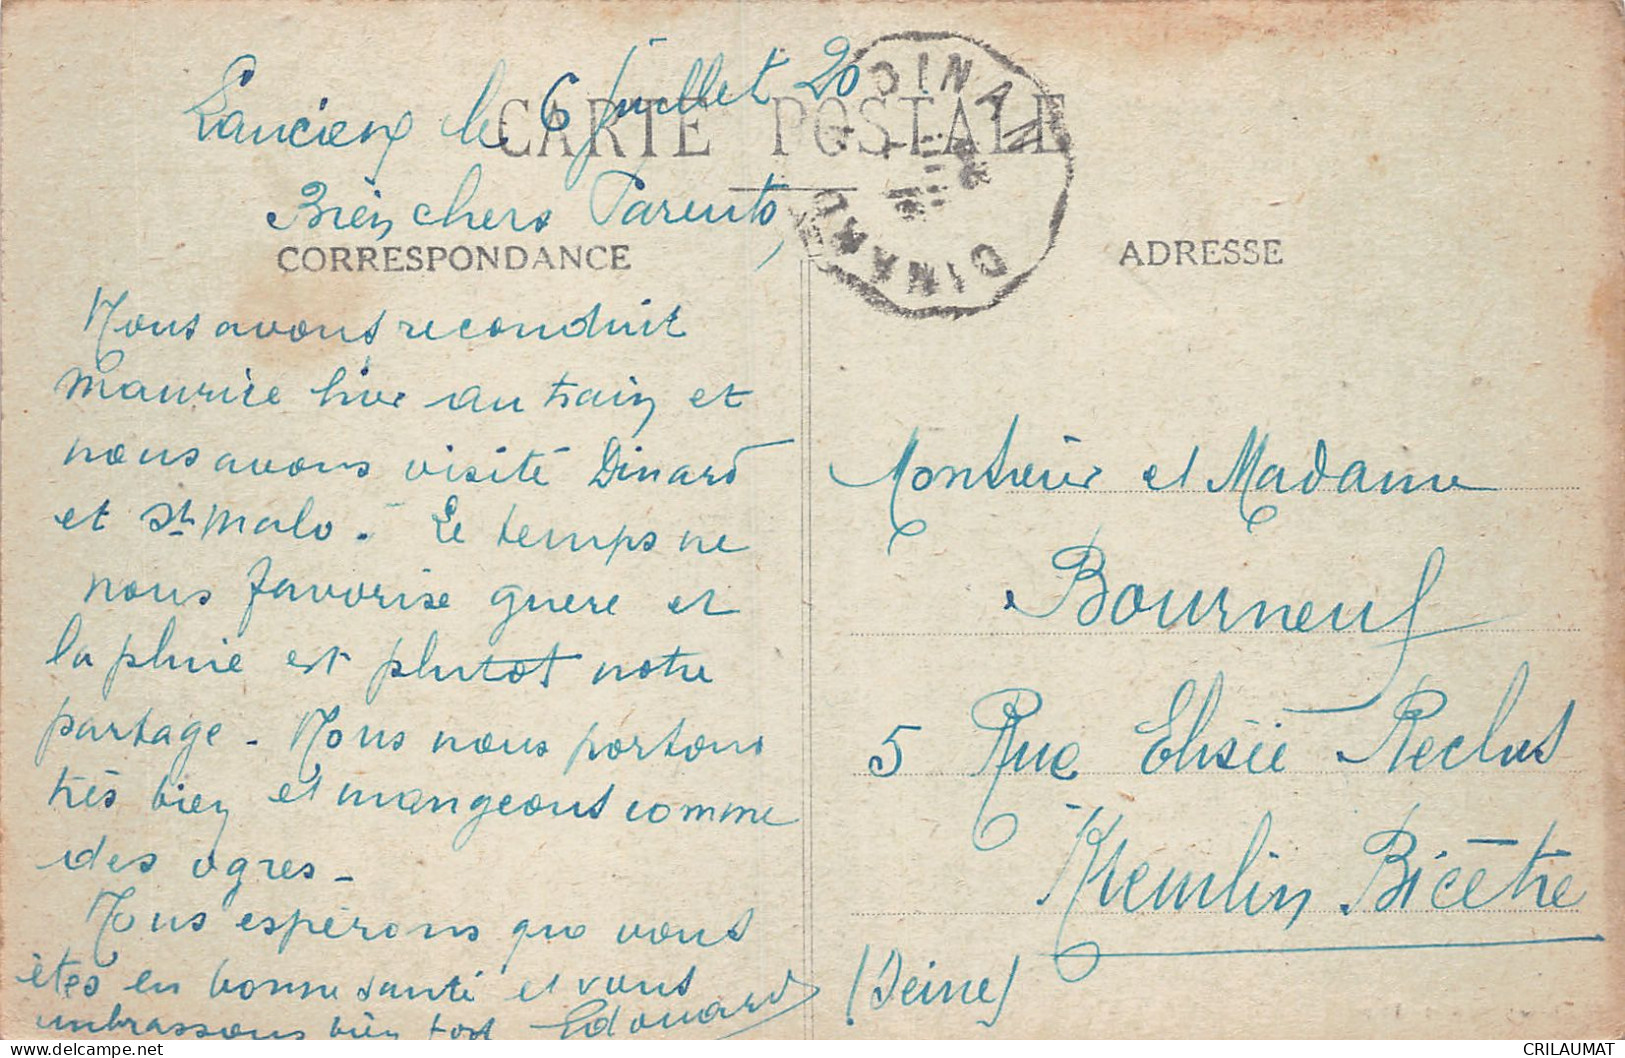 Lancieux le 6 juillet 20
CARTE POSTALE
Bien chers Parents,
CORRESPONDANCE
Nous avons reconduit
Maurice hier au train et
nous avons visité Dinard
et St Malo. Le temps ne
nous favorise guere et
la pluie est plutot notre
partage - Nous nous portons
très bien et mangeons comme
des ogres -
Nous espérons que vous
êtes en bonne santé et vous
embrassons bien fort Edouard
DINAN
DINARD
ADRESSE
Monsieur et Madame
Bourneuf
5 Rue Elisée Reclus
Kremlin Bicêtre
(Seine)
CRILAUMAT